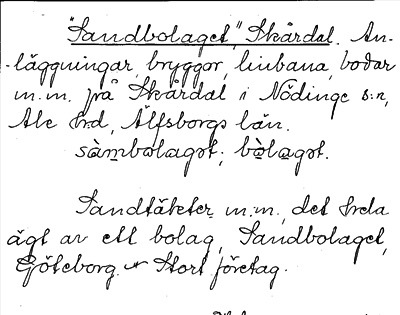 "Sandbolaget", Skårdal. An-
-läggningar, bryggor, linbana, bodar
m.m. på Skårdal i Nödinge s:n,
Ale hrd, Älfsborgs län.
sàmbolagət; bòlagət.
Sandtäkter m.m., det hela
ägt av ett bolag, Sandbolaget,
Göteborg. Stort företag.